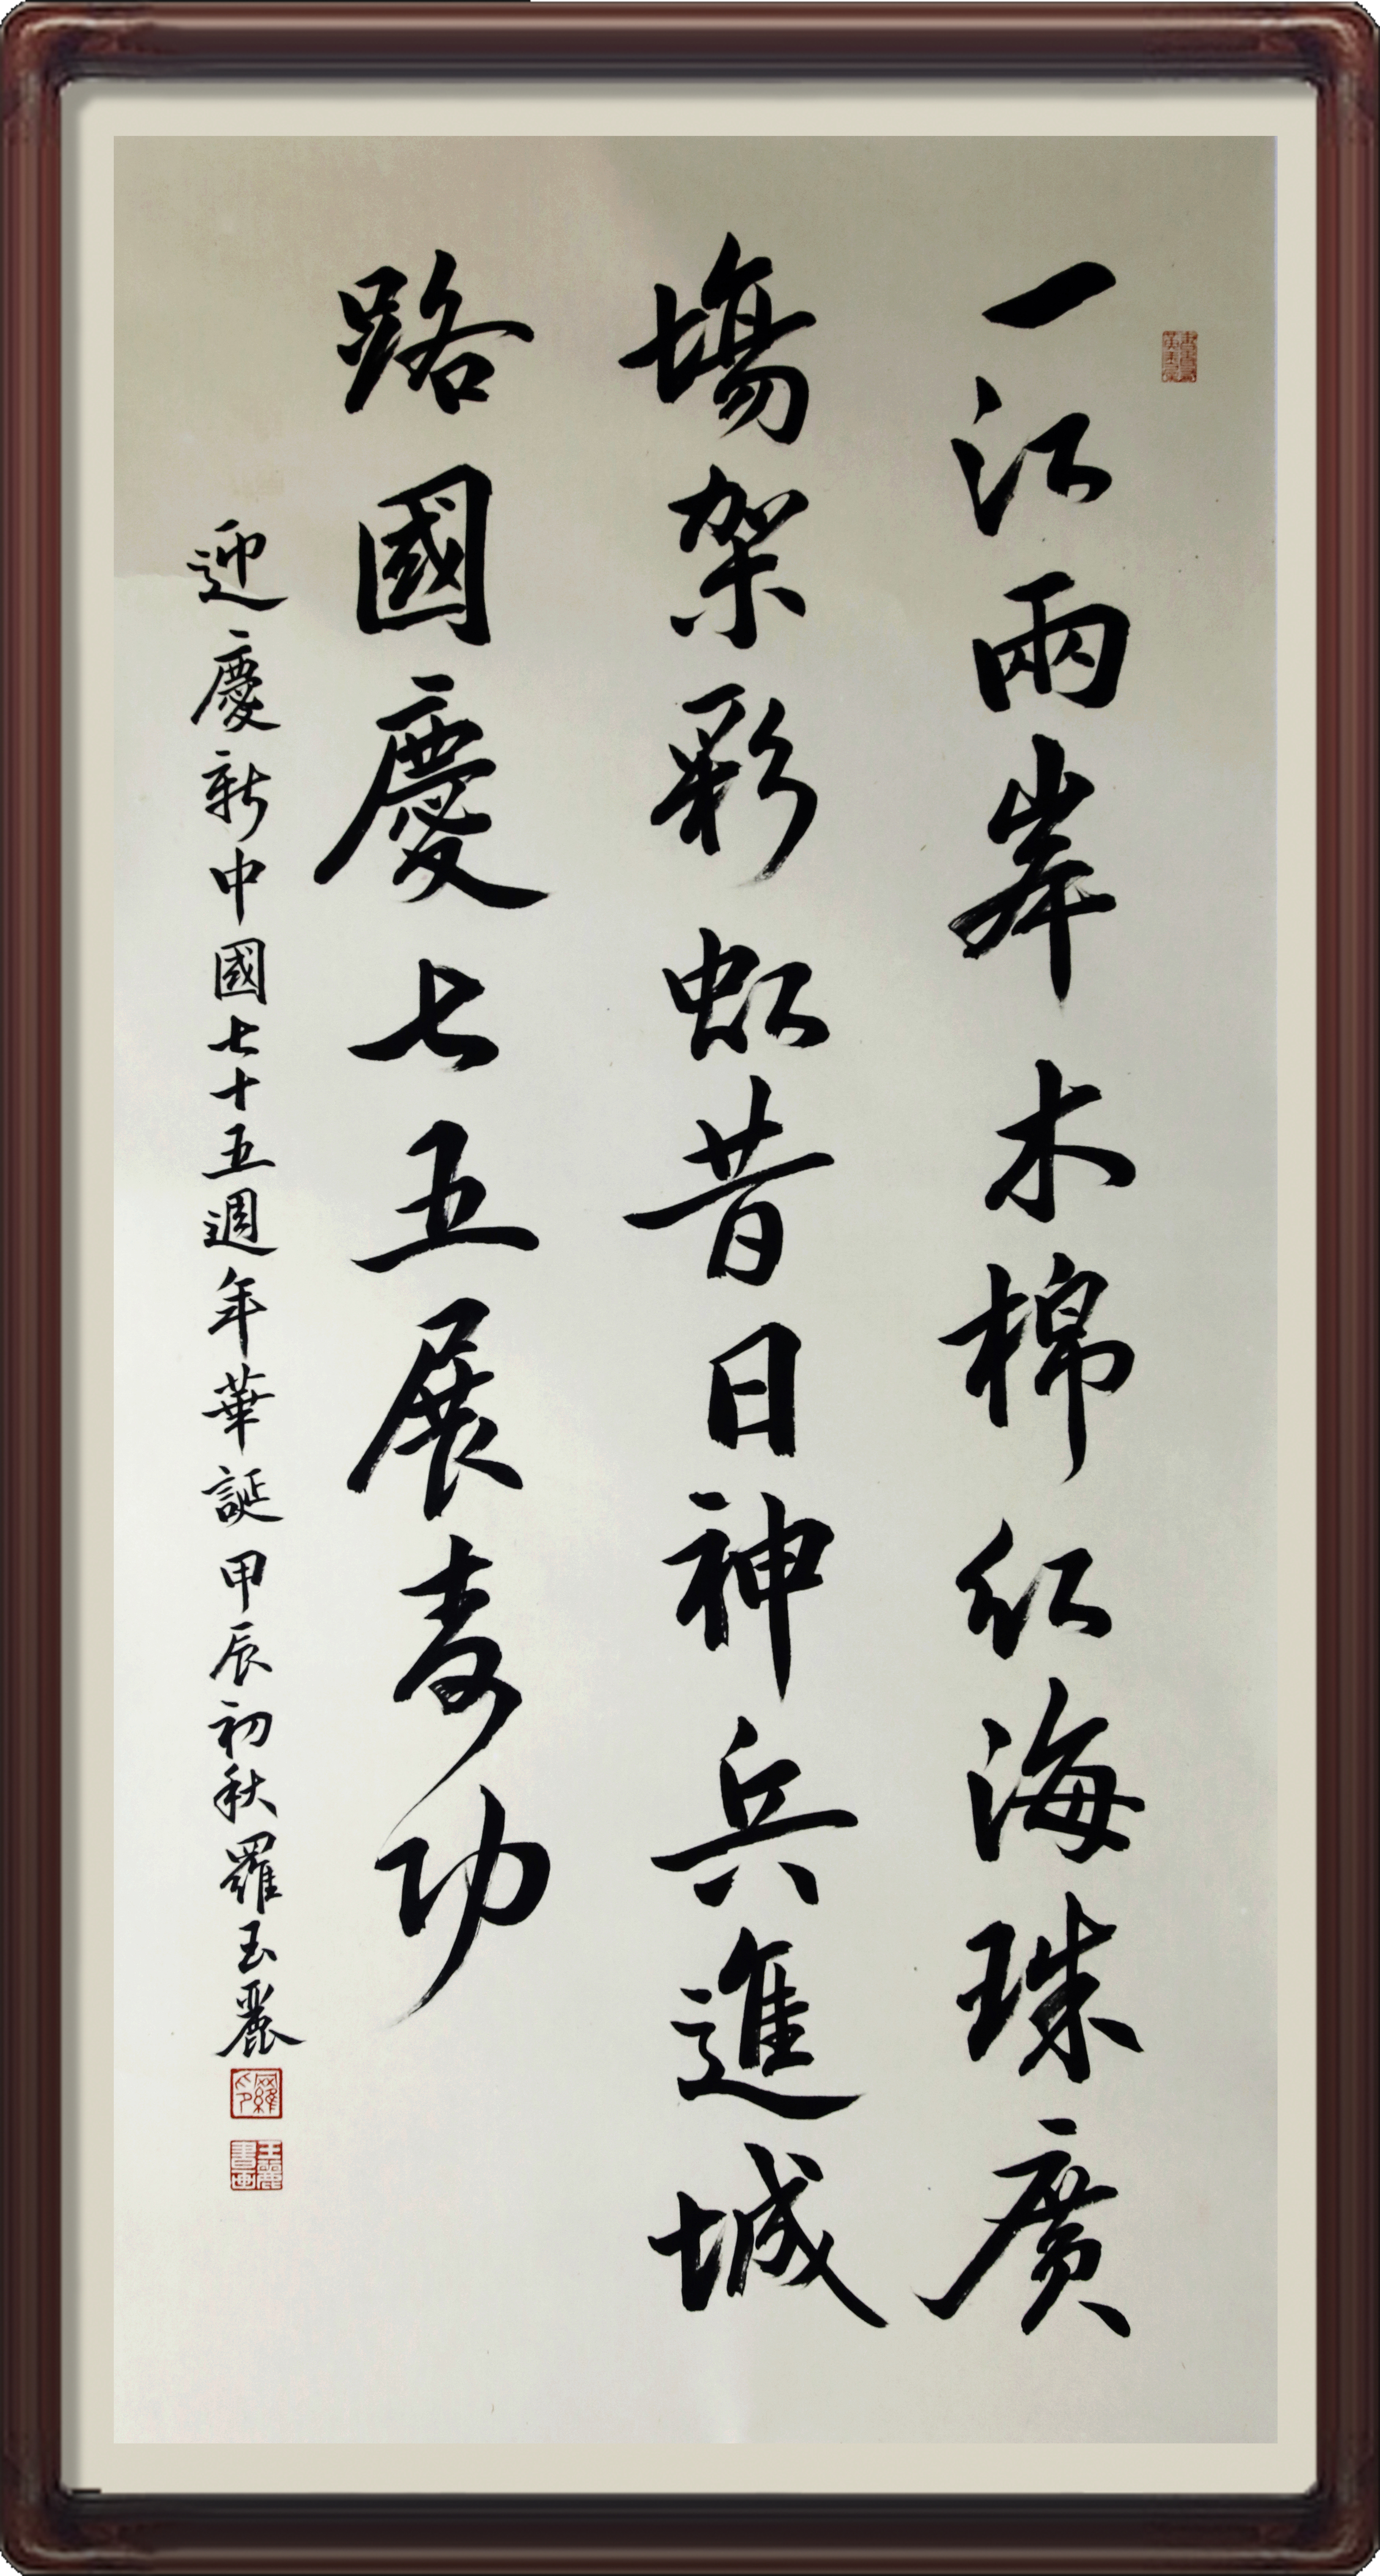 一江兩岸木棉红海珠廣
塲架彩虹昔日神兵進城
路國慶七五展功
迎慶新中國七十五週年華誕甲辰初秋羅玉麗
羅印
玉麗書画